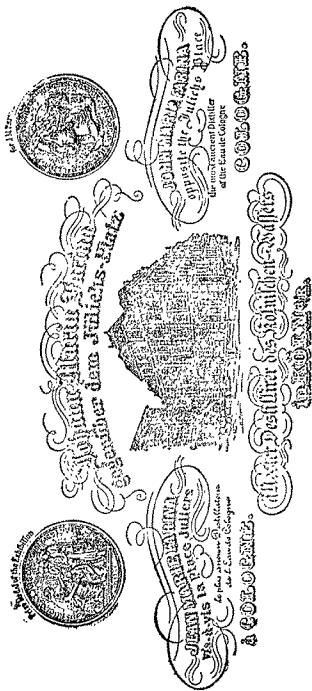 Johann Maria Farina
gegenüber dem Jülichs-Platz
JEAN MARIE FARINA
vis-à-vis la Place Juliers
le plus ancien Distillateur
de l'Eau de Cologne
À COLOGNE.
JOHN MARIA FARINA
opposite the Julichs Place
the most ancient Distiller
of the Eau de Cologne
COLOGNE.
ältester Destillirer des Kölnischen-Wassers
in KÖLN a/R.